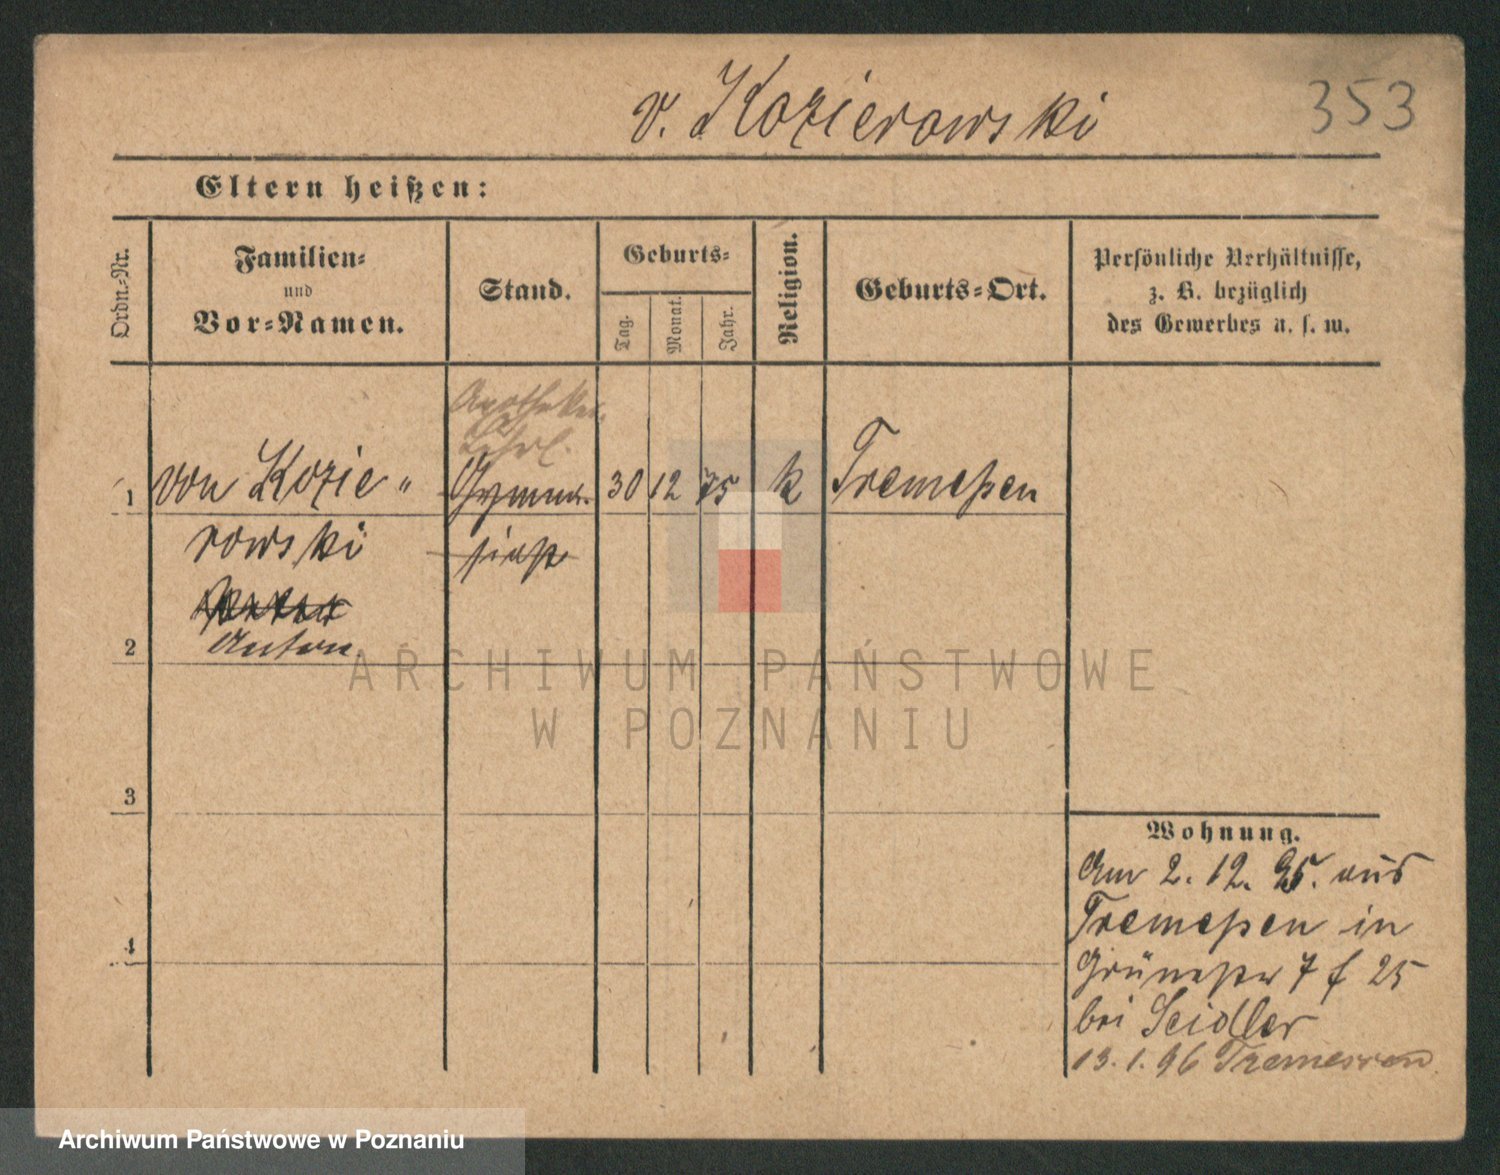 v. Kozierowski
353
Eltern heißen:
Ordn.-Nr.
Familien-
und
Vor-Namen.
Stand.
Geburts-
Tag.
Monat.
Jahr.
Religion.
Geburts-Ort.
Persönliche Verhältnisse,
z. B. bezüglich
des Gewerbes u. s. w.
Apotheker
Lehrl.
1 von Kozie" Gymna- 30 12 75 k Tremeßen
rowski siast
Anton
2
3
4
Wohnung.
Am 2. 12. 95. aus
Tremeßen in
Grünestr 7 f 25
bei Seidler
13. 1. 96 Tremessen
ARCHIWUM PAŃSTWOWE
W POZNANIU
Archiwum Państwowe w Poznaniu